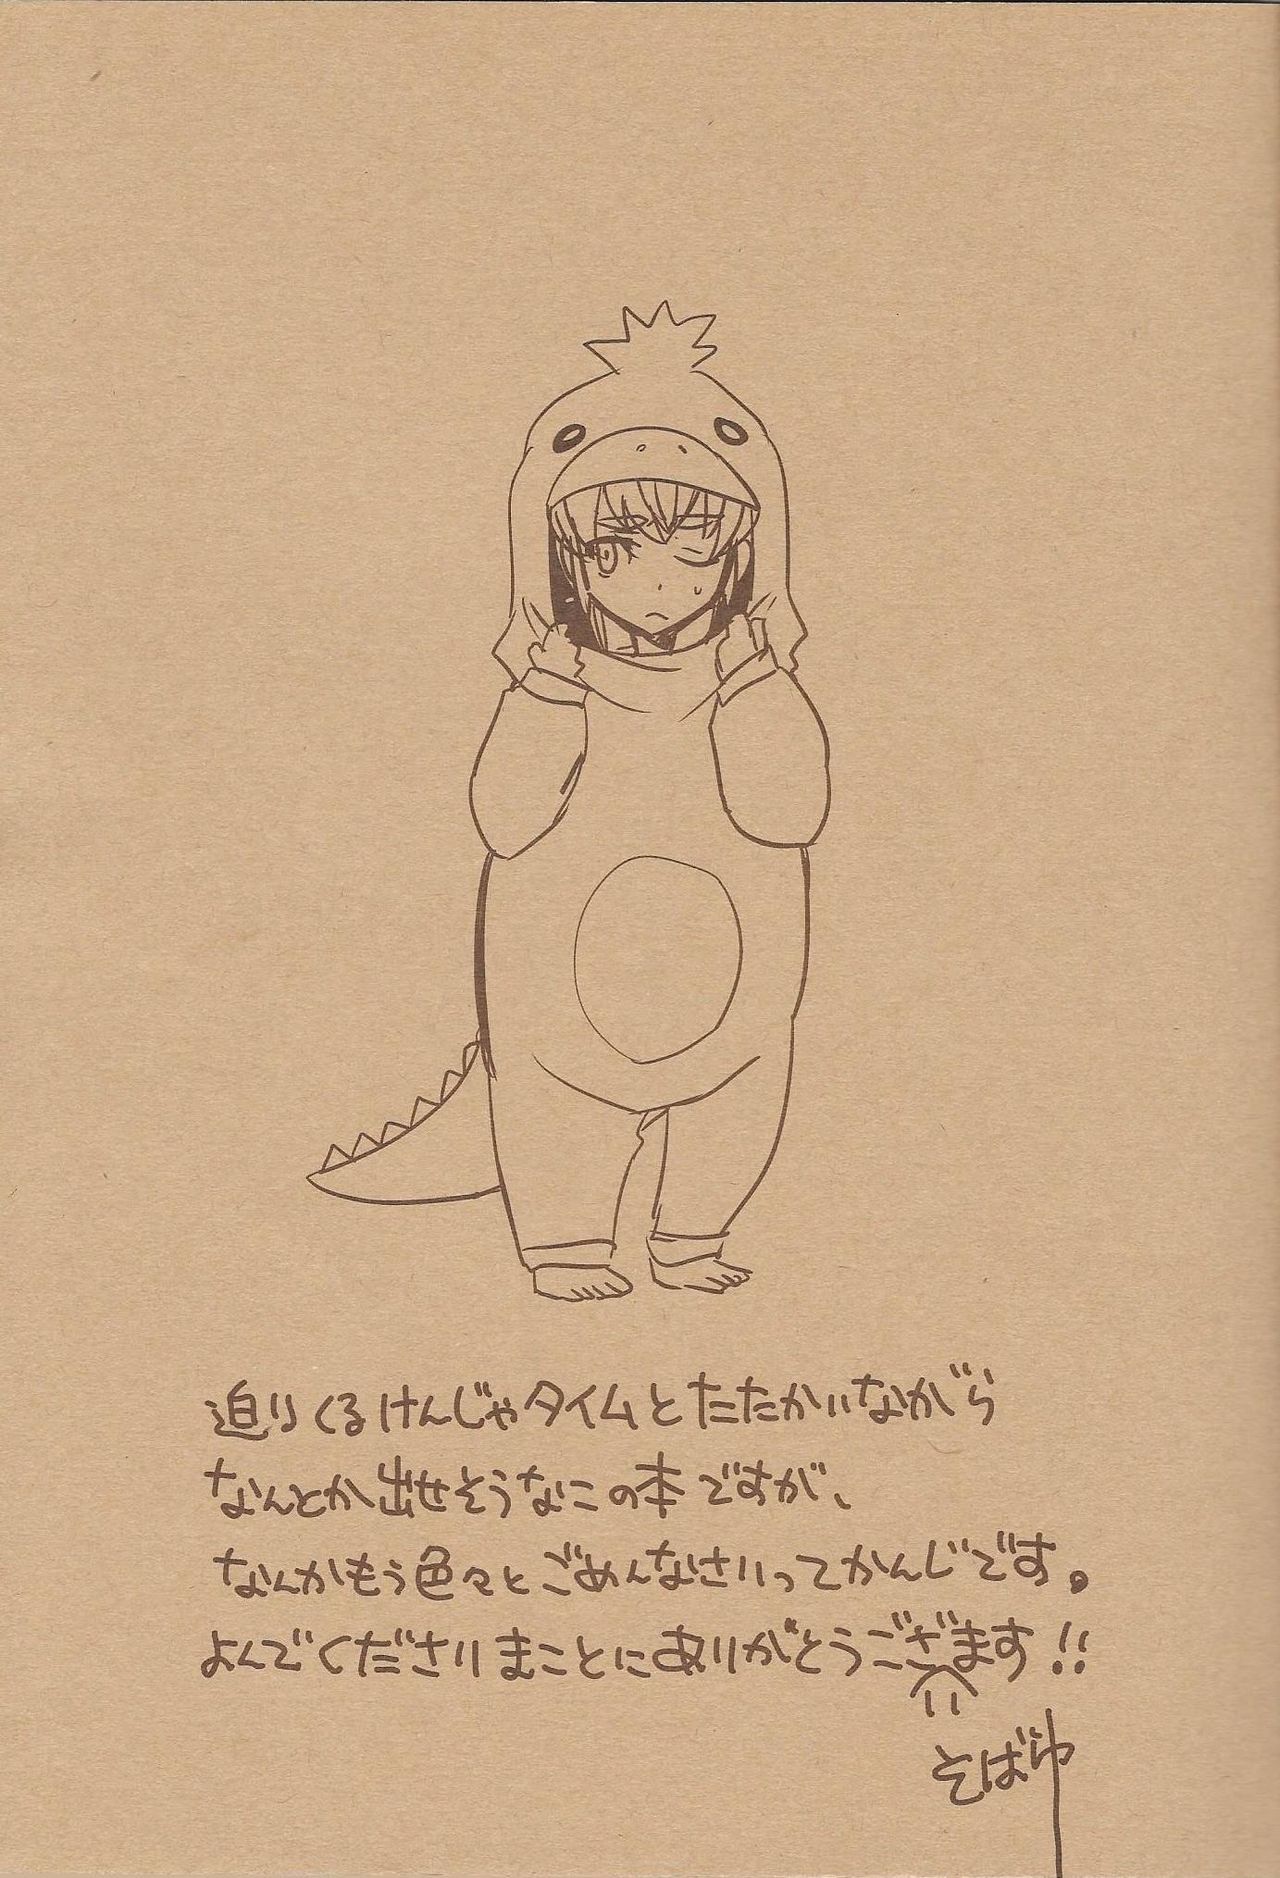 迫りくるけんじゃタイムとたたかいながら
なんとか出せそうなこの本ですが、
なんかもう色々とごめんなさいってかんじです。
よんでくださりまことにありがとうござます!!
い
そばゆ